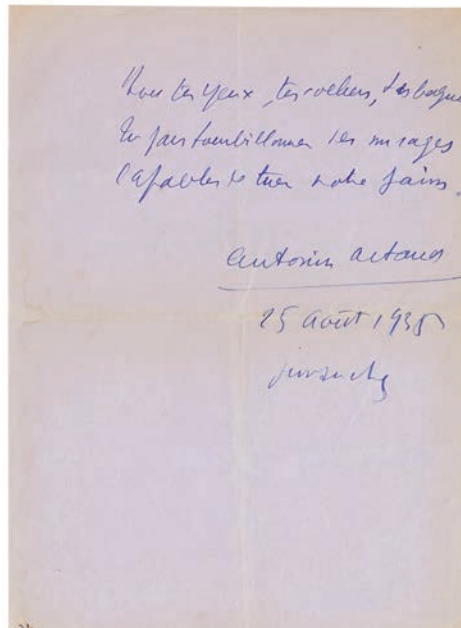 tes yeux, tes colliers, tes bagues
Tu fais tourbillonner des mirages
capables de tuer notre faim.
Antonin Artaud
25 août 1935